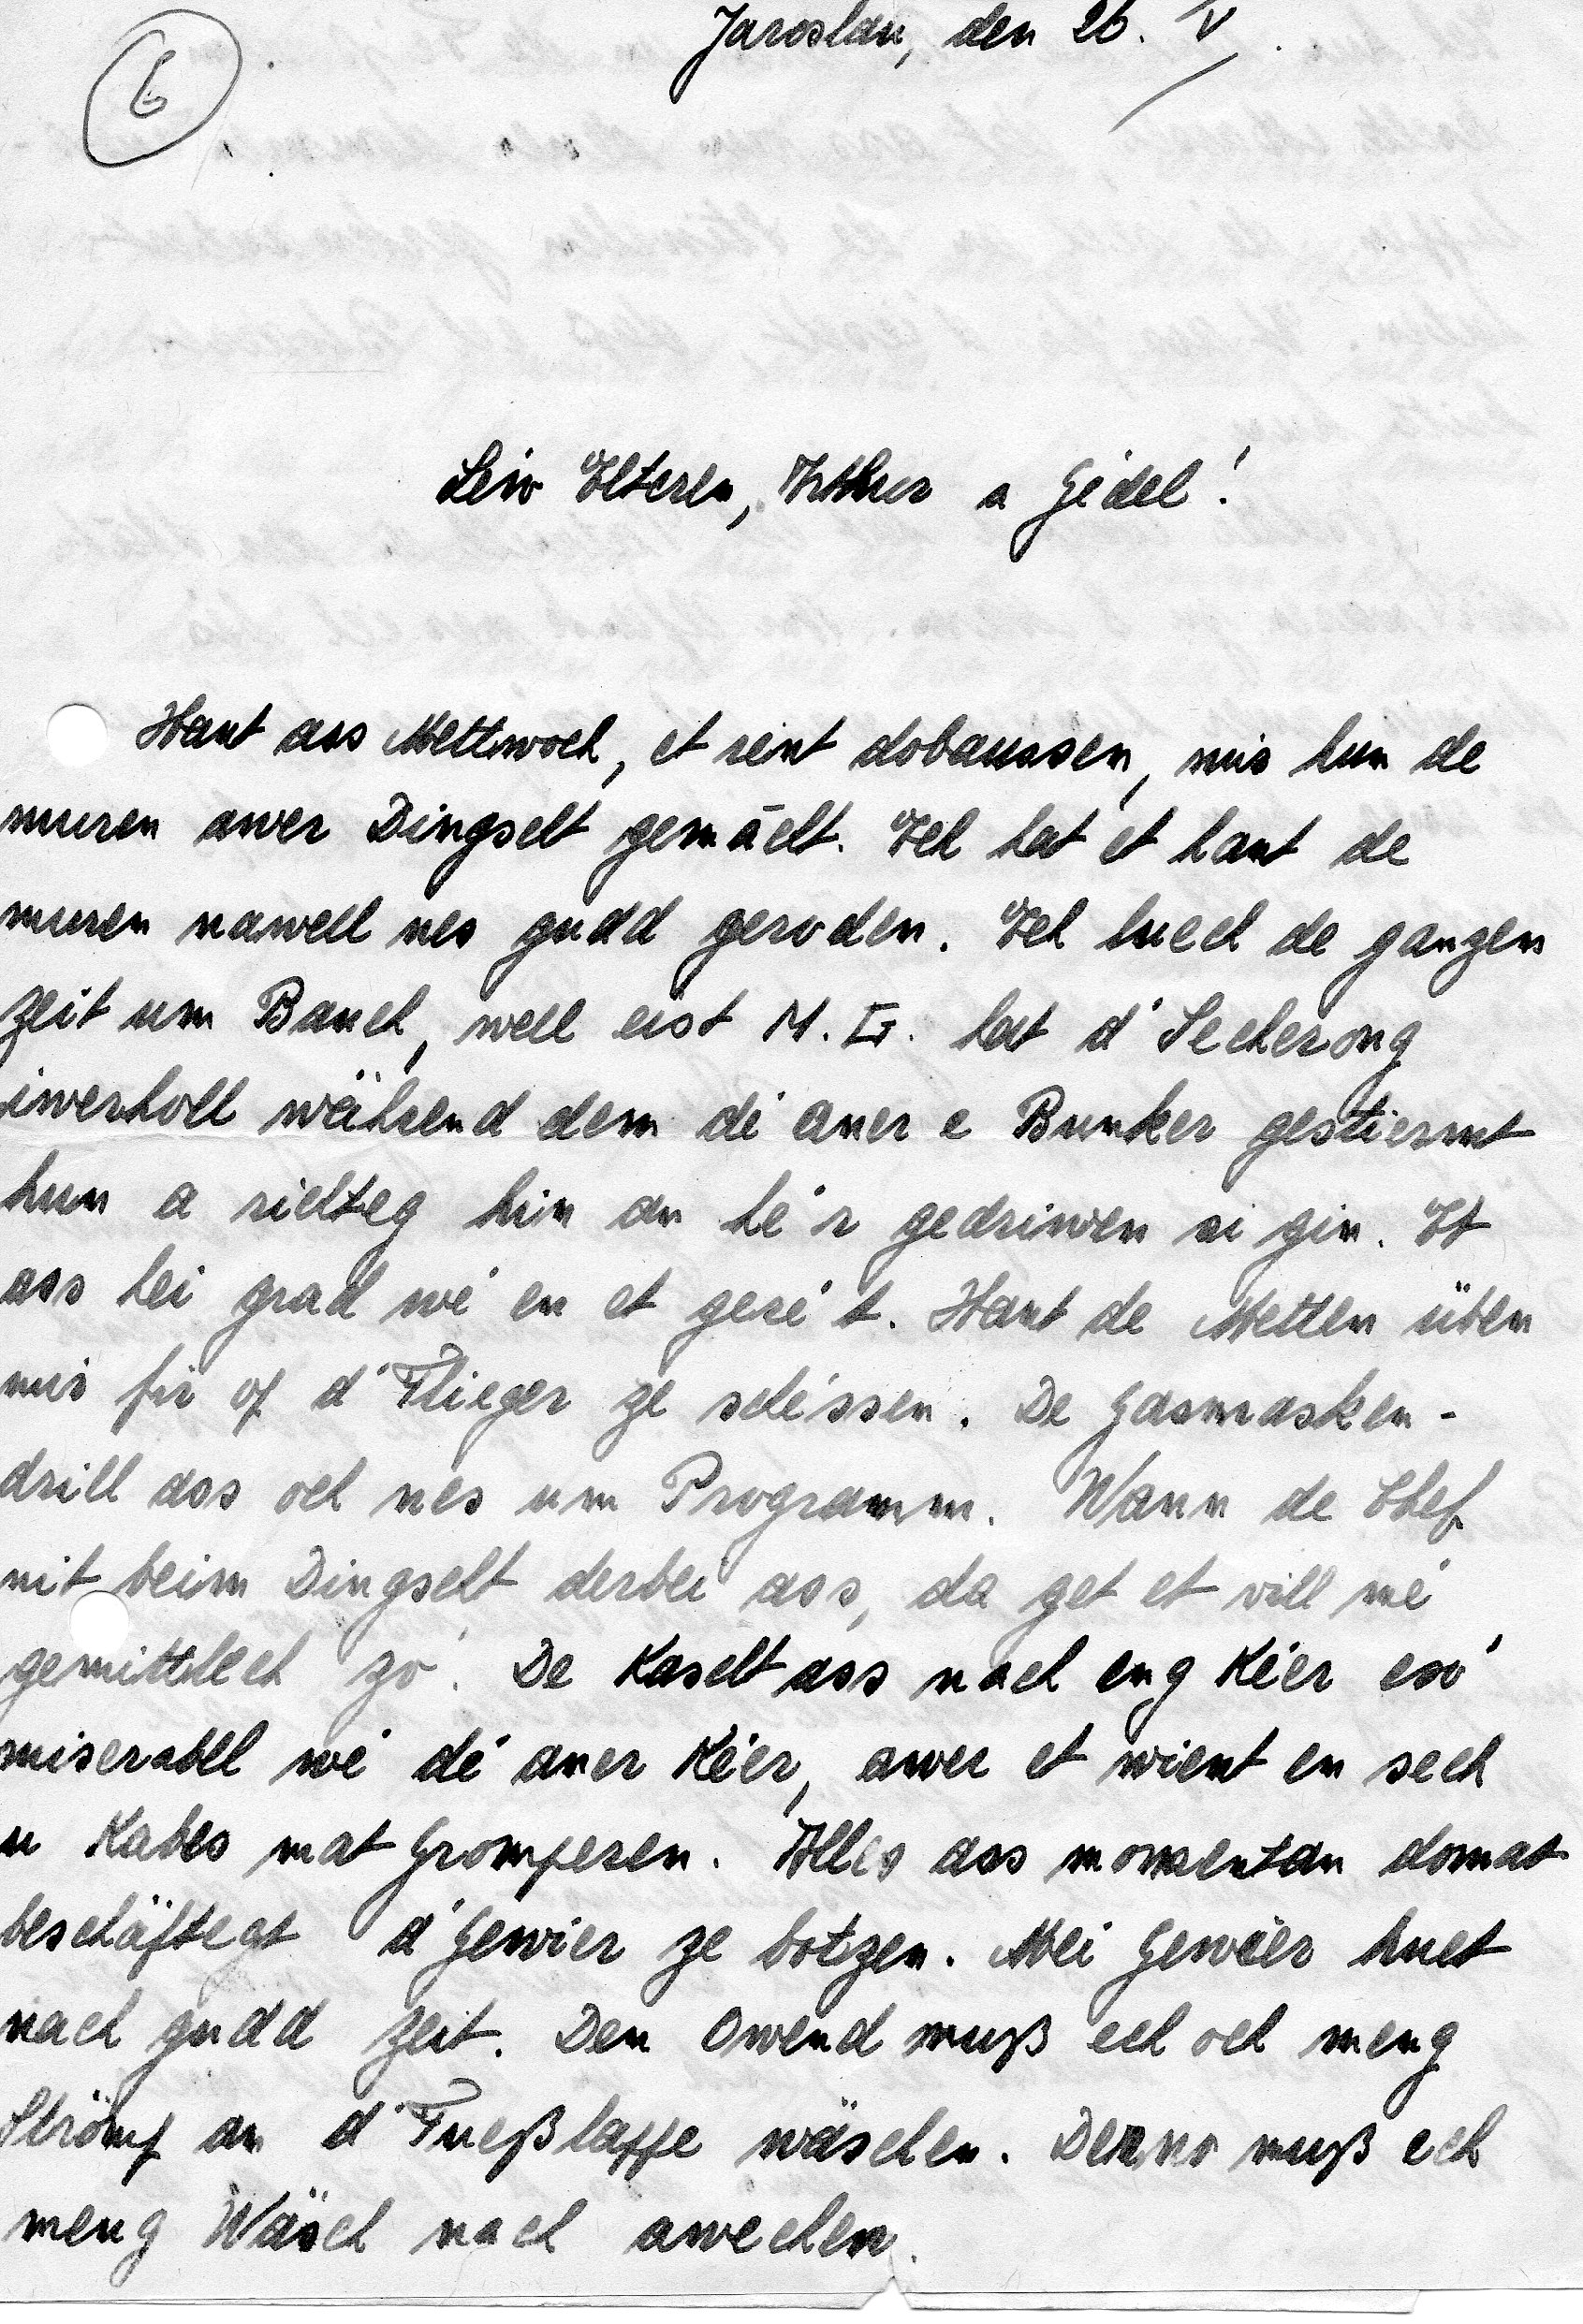 6
Jaroslau, den 26. V.
Leiw Elteren, Arthur a Gédel!
Haut ass Mettwoch, et reint dobaussen, mir hun de
muren awer Dingscht gemâcht. Ech hat et haut de
muren nawell nes gudd geroden. Ech luech de ganzen
Zeit um Bauch, well eist M. G. hat d'Secherong
iwerholl während dem dé aner e Bunker gestiermt
hun a richteg hin an hé'r gedriwen si gin. Et
ass hei grad wé en et geré't. Haut de Metten üben
mir fir op d'Flieger ze schéssen. De Gasmasken-
drill ass och nes um Programm. Wann de Chef
nit beim Dingscht derbei ass, da get et vill mé
gemittlech zo'. De Kascht ass nach eng Kéier eso'
miserabel wé dé aner Kéier, awer et wient en sech
u Kabes mat Gromperen. Alles ass momentan domat
beschäftegt d'Gewier ze botzen. Mei Gewéer huet
nach gudd Zeit. Den Owend muß ech och meng
Strömp an d'Fueßlappe wäschen. Derno muß ech
meng Wäsch nach awechen.